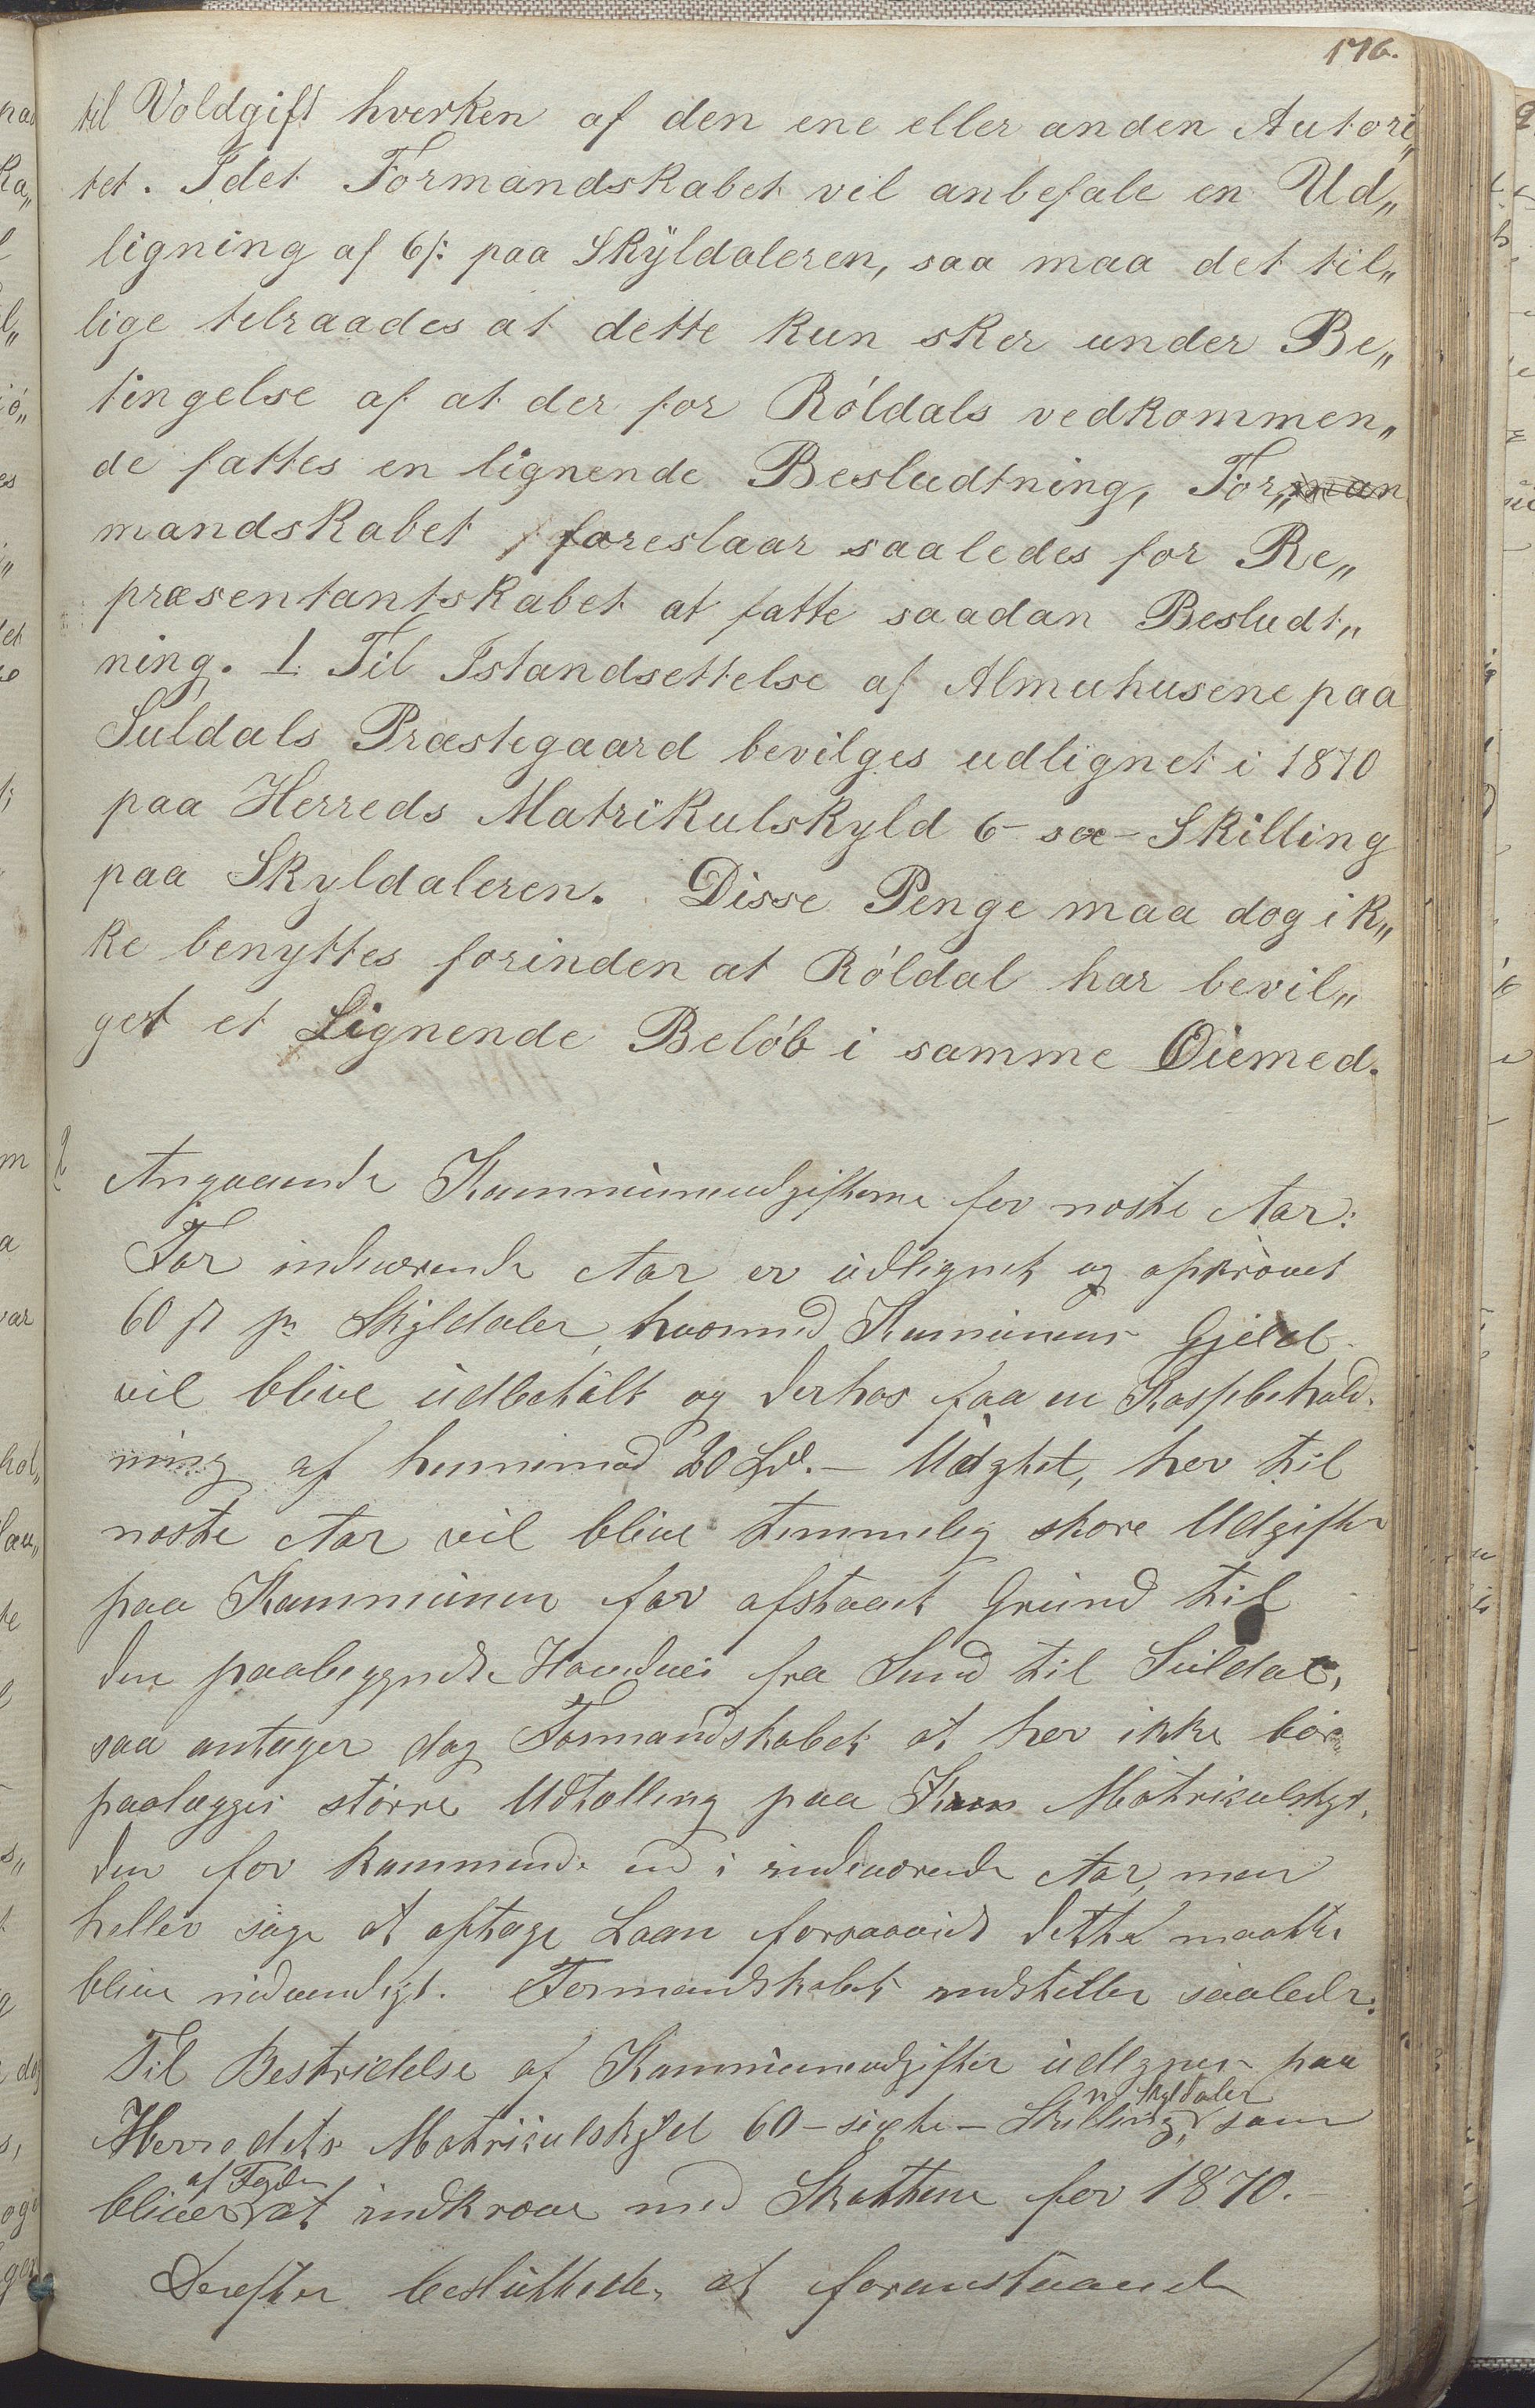 176.
til Voldgift hverken af den ene eller anden Autori„
tet. Idet Formandskabet vil anbefale en Ud„
ligning af 6 /: paa Skÿldaleren, saa maa det til„
lige telraades at dette kun sker under Be„
tingelse af at der for Róldals vedkommen„
de fattes en lignende Besludtning, For„
mandskabet foreslaar saaledes for Re„
præsentantskabet at fatte saadan Besludt„
ning. 1. Til Istandsettelse af Almuhusene paa
Suldals Præstegaard bevilges udlignet i 1870
paa Herreds Matrikulskyld 6 - sex - Skilling
paa Skyldaleren. Disse Penge maa dog ik„
ke benyttes forinden at Róldal har bevil„
get et Lignende Belób i samme Öiemed.
2 Angaaende Kommuneudgifterne for næste Aar:
For indeværende Aar er udlignet og opkrævet
60 ß pr Skyldaler, hvormed Kommunens Gjeld
vil blive udbetalt og derhos faa en Kassebehold-
ning af henimod 20 Spd. – Uagtet, her til
næste Aar vil blive temmelig store Udgifter
paa Kommunen for afstaaet Grund til
den paabegyndte Hovedvei fra Sand til Suldal,
saa antager dog Formandskabet at her ikke bör
paalægges större Udtælling paa Matrikulskyl-
den for kommende end i indeværende Aar, men
heller söge at optage Laan forsaavidt dette maatte
blive nödvendigt. Formandskabet indstiller saaledes:
Til Bestridelse af Kommuneudgifter udlignes paa
Herredets Matrikulskyld 60 - sexti - Skilling pr Skyldaler, som
bliver af Fogden at indkræve med Skatterne for 1870. –
Derefter besluttede, at foranstaaende